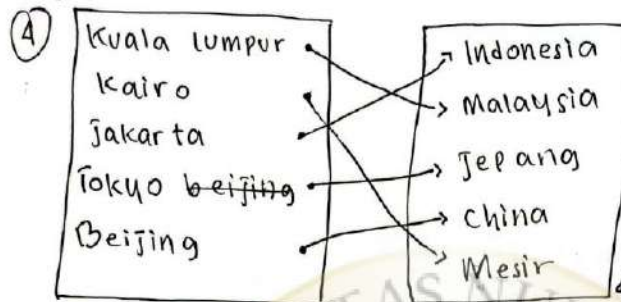 4
Kuala lumpur
Kairo
Jakarta
Tokyo beijing
Beijing
Indonesia
Malaysia
Jepang
China
Mesir
AS NU